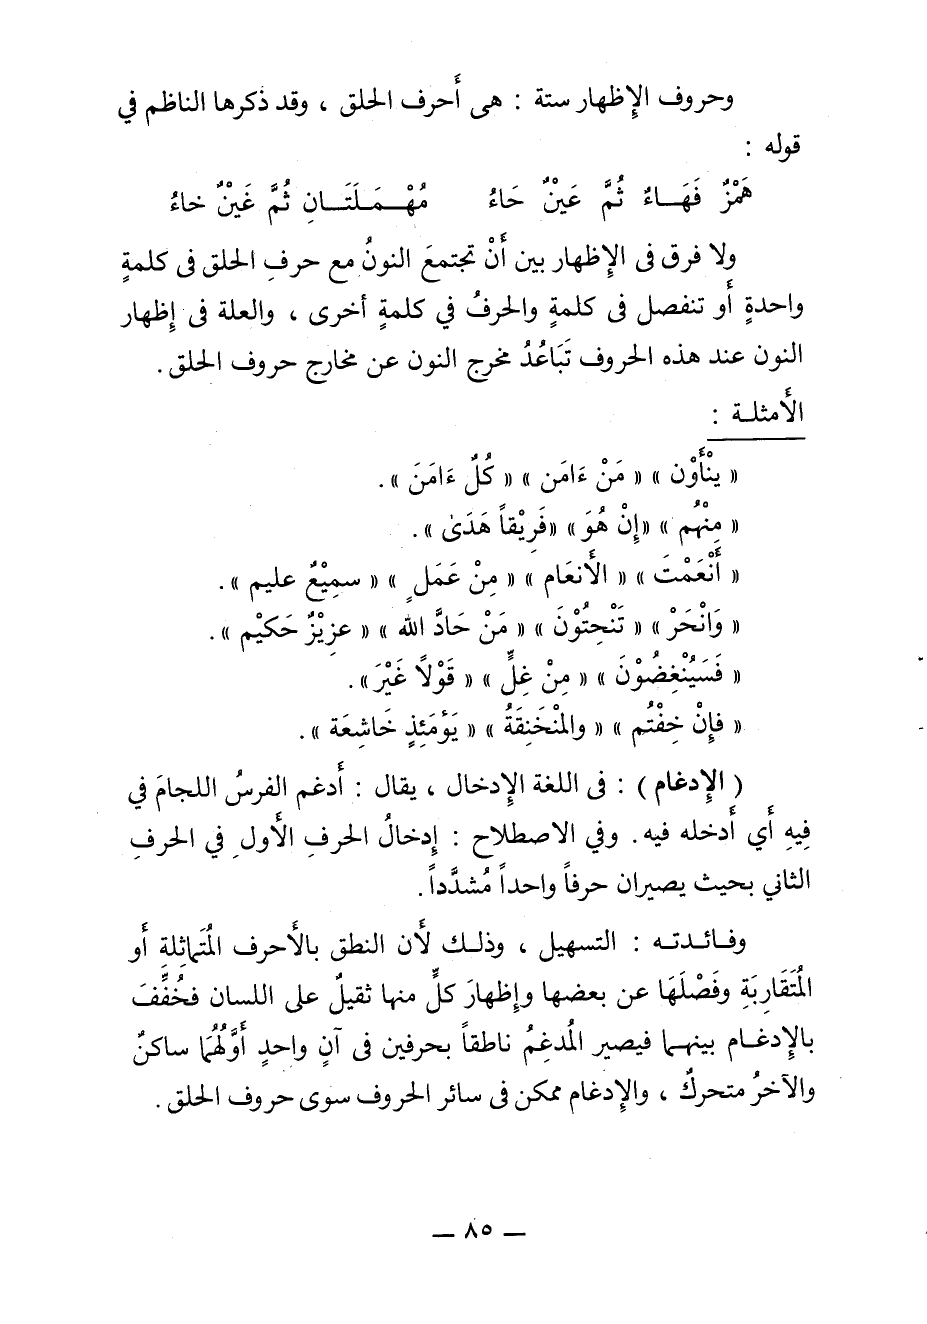 وحروف الإظهار ستة : هى أَحرف الحلق ، وقد ذكرها الناظم في
قوله :
هَمْزٌ فَهَـاءٌ ثُمَّ عَيْنٌ حَاءُ مُهْـمَـلَتَـانِ ثُمَّ غَيْنٌ خاءُ
ولا فرق فى الإِظهار بين أَنْ تجتمعَ النونُ مع حرفِ الحلق فى كلمةٍ
واحدةٍ أَو تنفصل فى كلمةٍ والحرفُ في كلمةٍ أخرى ، والعلة فى إِظهار
النون عند هذه الحروف تَبَاعُدُ مخرج النون عن مخارج حروف الحلق .
الأَمثلـة :
« ينْأَوْن » « مَنْ ءَامَن » « كُلٌ ءَامَنَ » .
« مِنْهُم » «إِنْ هُوَ» «فَرِيْقاً هَدَىٰ » .
« أَنْعَمْتَ » « الأَنعَام » « مِنْ عَمَلٍ » « سمِيْعٌ عليم » .
« وَانْحَرْ » « تَنْحِتُوْنَ » « مَنْ حَادَّ الله » « عزِيْزٌ حَكيْم » .
« فَسَيُنْغِضُوْنَ » « مِنْ غِلٍّ » « قَوْلاً غَيْرَ» .
« فإِنْ خِفْتُم » « والمْنْخَنِقَةُ » « يَوَمَئِذٍ خَاشِعَة » .
( الإِدغام ) : فى اللغة الإِدخال ، يقال : أَدغم الفرسُ اللجامَ في
فِيهِ أَي أَدخله فيه . وفي الاصطلاح : إِدخالُ الحرفِ الأَولِ في الحرفِ
الثاني بحيث يصيران حرفاً واحداً مُشدَّداً .
وفـائـدتـه : التسهيل ، وذلـك لأَن النطق بالأَحرف المُتَماثِلة أَو
المُتَقَاربَةِ وفَصْلَهَا عن بعضها وإِظهارَ كلٍّ منها ثقيلٌ على اللسان فخُفِّفَ
بالإِدغـام بينهـما فيصير المُدغِمُ ناطقاً بحرفين فى آنٍ واحدٍ أَوَّلُهُما ساكنٌ
والآخرُ متحركٌ ، والإِدغام ممكن فى سائر الحروف سوى حروف الحلق .
— ٨٥ —